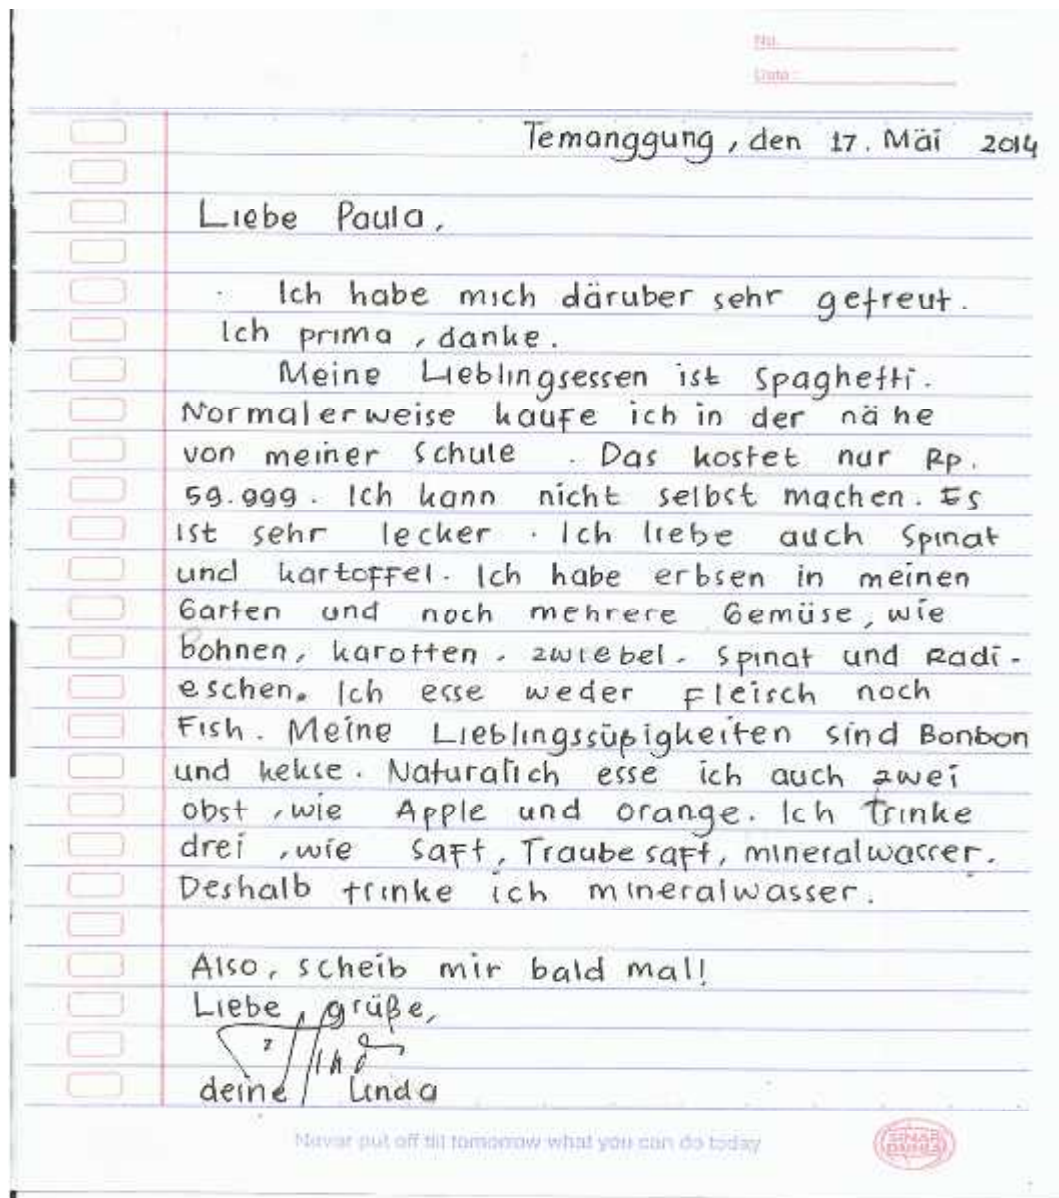 No.
Date :
Temanggung, den 17. Mäi 2014
Liebe Paula,
Ich habe mich däruber sehr gefreut.
Ich prima, danke.
Meine Lieblingsessen ist Spaghetti.
Normalerweise kaufe ich in der nähe
von meiner Schule . Das kostet nur Rp.
59.999. Ich kann nicht selbst machen. Es
ist sehr lecker . Ich liebe auch Spinat
und kartoffel. Ich habe erbsen in meinen
Garten und noch mehrere Gemüse, wie
bohnen, karotten, zwiebel, spinat und Radi-
eschen. Ich esse weder Fleisch noch
Fish. Meine Lieblingssüßigkeiten sind Bonbon
und kekse. Naturalich esse ich auch zwei
obst, wie Apple und orange. Ich trinke
drei, wie Saft, Traube saft, mineralwasser.
Deshalb trinke ich mineralwasser.
Also, scheib mir bald mal!
Liebe grüße,
deine Linda
Never put off till tomorrow what you can do today
SINAR DUNIA